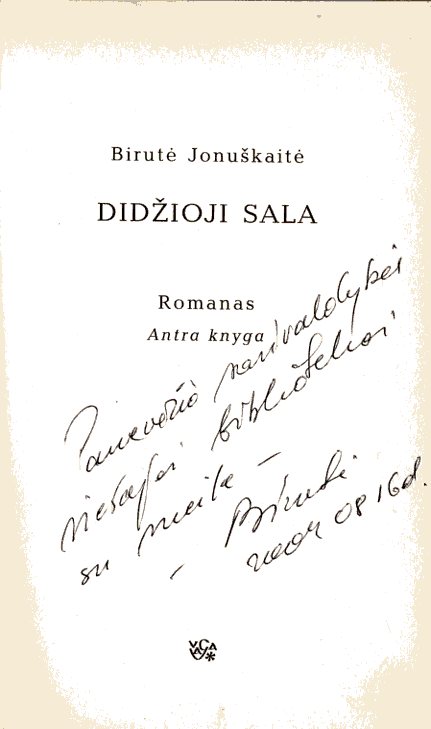 Birutė Jonuškaitė
DIDŽIOJI SALA
Romanas
Antra knyga
Panevėžio savivaldybės
viešajai bibliotekai
su meile –
– Birutė
08 16 d.
VAGA